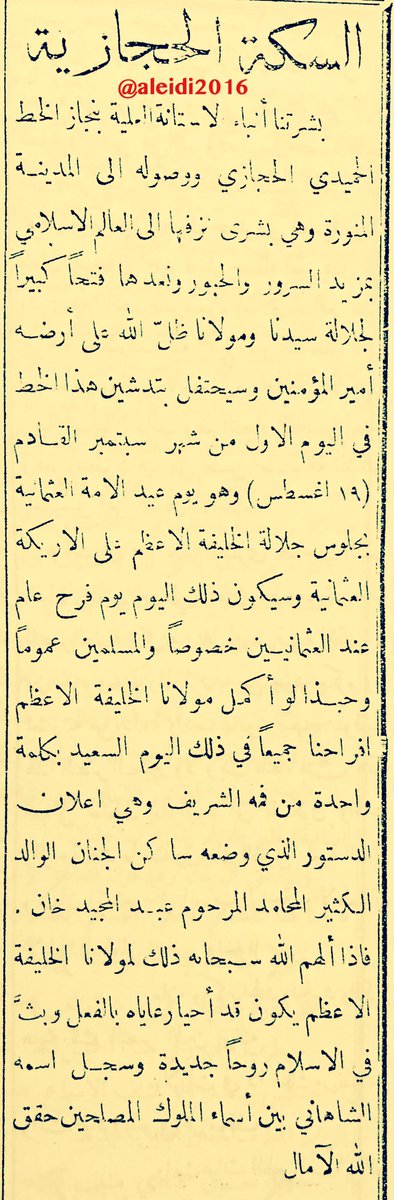 السكة الحجازية
@aleidi2016
بشرتنا أنباء لاستانة العلية بنجاز الخط
الحميدي الحجازي ووصوله الى المدينة
المنورة وهي بشرى نزفها الى العالم الاسلامي
بمزيد السرور والحبور ونعدها فتحاً كبيراً
لجلالة سيدنا ومولانا ظلّ الله على أرضه
أمير المؤمنين وسيحتفل بتدشين هذا الخط
في اليوم الاول من شهر سبتمبر القادم
(١٩ اغسطس) وهو يوم عيد الامة العثمانية
بجلوس جلالة الخليفة الاعظم على الاريكة
العثمانية وسيكون ذلك اليوم يوم فرح عام
عند العثمانيين خصوصاً والمسلمين عموماً
وحبذا لو أكمل مولانا الخليفة الاعظم
افراحنا جميعاً في ذلك اليوم السعيد بكلمة
واحدة من فمه الشريف وهي اعلان
الدستور الذي وضعه ساكن الجنان الوالد
الكثير المحامد المرحوم عبد المجيد خان .
فاذا ألهم الله سبحانه ذلك لمولانا الخليفة
الاعظم يكون قد أحيا رعاياه بالفعل وبثَّ
في الاسلام روحاً جديدة وسجل اسمه
الشاهاني بين أسماء الملوك المصلحين حقق
الله الآمال